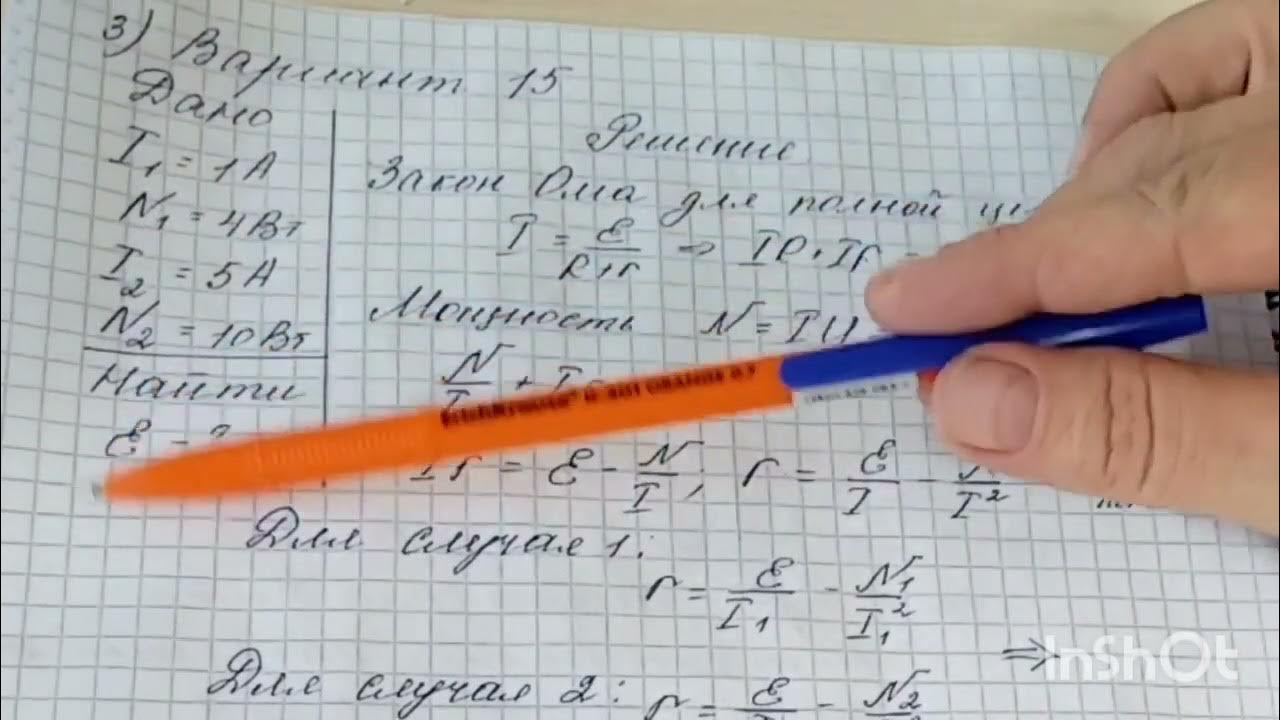 3) Вариант 15
Дано
I₁ = 1А
N₁ = 4Вт
I₂ = 5А
N₂ = 10Вт
Найти
ℰ - ?
Решение
Закон Ома для полной
I = ℰ/(R+r) => IR+Ir =
Мощность N = IU =
N/I + I
Ir = ℰ - N/I; r = ℰ/I - N/I²
Для случая 1:
r = ℰ/I₁ - N₁/I₁²
=>
Для случая 2:
r = ℰ/ - N₂/
InShOt